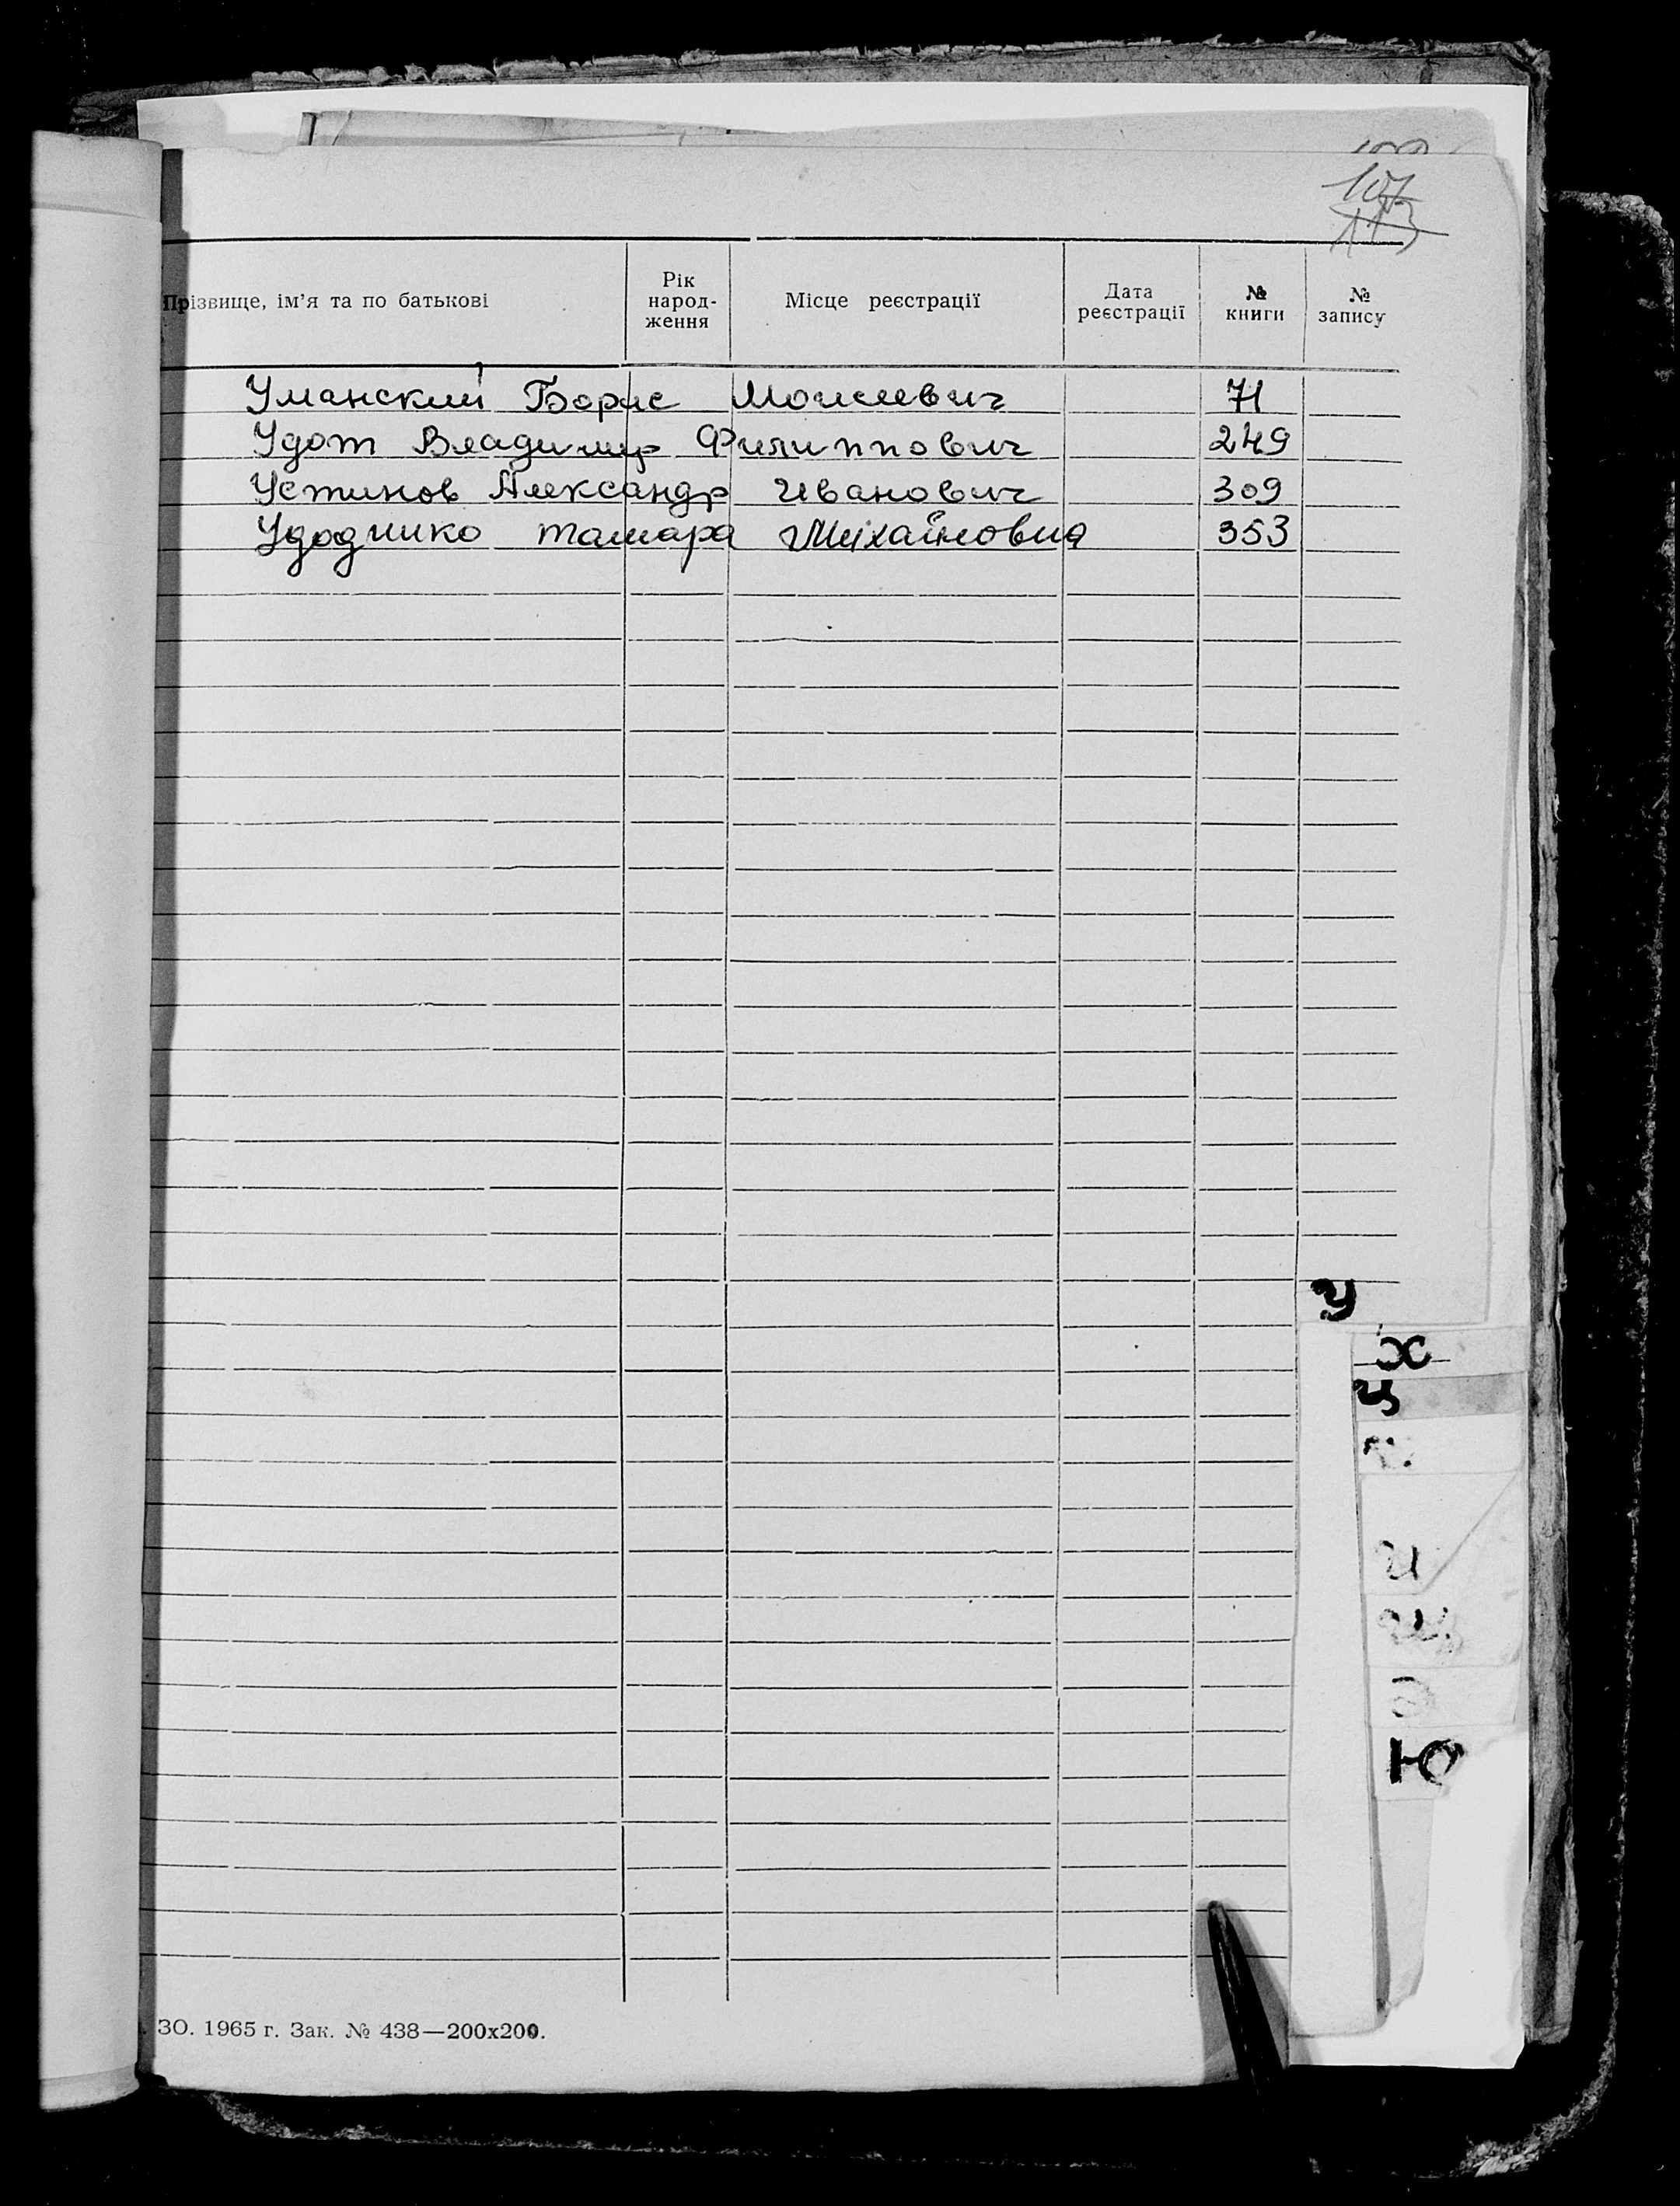 107
113
Прізвище, ім'я та по батькові
Рік народ-ження
Місце реєстрації
Дата реєстрації
№ книги
№ запису
Уманский Борис Моисеевич 71
Удот Владимир Филиппович 249
Устинов Александр Иванович 309
Тамара Михайловна 353
У
Х
Ц
Ю
ЗО. 1965 г. Зак. № 438—200х200.